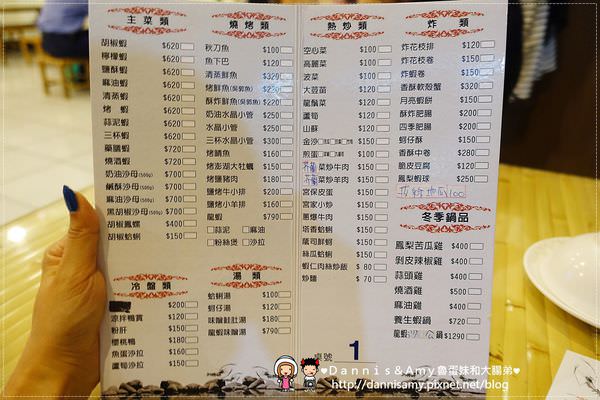 主菜類
胡椒蝦 $620
檸檬蝦 $620
鹽酥蝦 $620
麻油蝦 $620
清蒸蝦 $620
烤蝦 $620
蒜泥蝦 $620
三杯蝦 $620
藥膳蝦 $700
燒酒蝦 $720
奶油沙母(500g) $700
鹹酥沙母(500g) $700
麻油沙母(500g) $700
黑胡椒沙母(500g) $700
胡椒鳳螺 $400
胡椒蛤蜊 $150
冷盤類
$200
涼拌鴨賞 $150
粉肝 $150
櫻桃鴨 $150
魚蛋沙拉 $150
蘆筍沙拉 $150
燒烤類
秋刀魚 $100
魚下巴 $120
清蒸鮮魚 $320
烤鮮魚(吳郭魚) $220
酥炸鮮魚(吳郭魚) $220
奶油水晶小管 $250
水晶小管 $250
三杯水晶小管 $300
烤鯖魚 $150
烤澎湖大牡蠣 $150
烤鹽豬肉 $180
鹽烤牛小排 $200
鹽烤羊小排 $150
龍蝦 $790
蒜泥 麻油
粉絲煲 沙拉
湯類
蛤蜊湯 $100
蚵仔湯 $150
味噌鮭肚湯 $180
龍蝦味噌湯 $790
熱炒類
空心菜 $100
高麗菜 $100
波菜 $100
大荳苗 $150
龍鬚菜 $150
蘆筍 $150
山蘇 $150
金沙 $150
煎蛋 $100
菜炒牛肉 $150
菜炒羊肉 $150
宮保皮蛋 $150
宮家小炒 $150
蔥爆牛肉 $150
塔香蛤蜊 $150
蔭司鮮蚵 $150
絲瓜蛤蜊 $150
蝦仁肉絲炒飯 $ 70
炒麵 $ 70
桌號 1
炸類
炸花枝排 $120
炸花枝卷 $150
炸蝦卷 $150
香酥軟殼蟹 $320
月亮蝦餅 $150
酥炸肥腸 $200
四季肥腸 $200
蚵仔酥 $150
香酥中卷 $280
脆皮豆腐 $120
鳳梨蝦球 $250
冬季鍋品
鳳梨苦瓜雞 $400
剝皮辣椒雞 $400
蒜頭雞 $400
燒酒雞 $500
麻油雞 $400
養生蝦鍋 $720
♥Dannis&Amy魯蛋妹和大腸弟♥
http://dannisamy.pixnet.net/blog